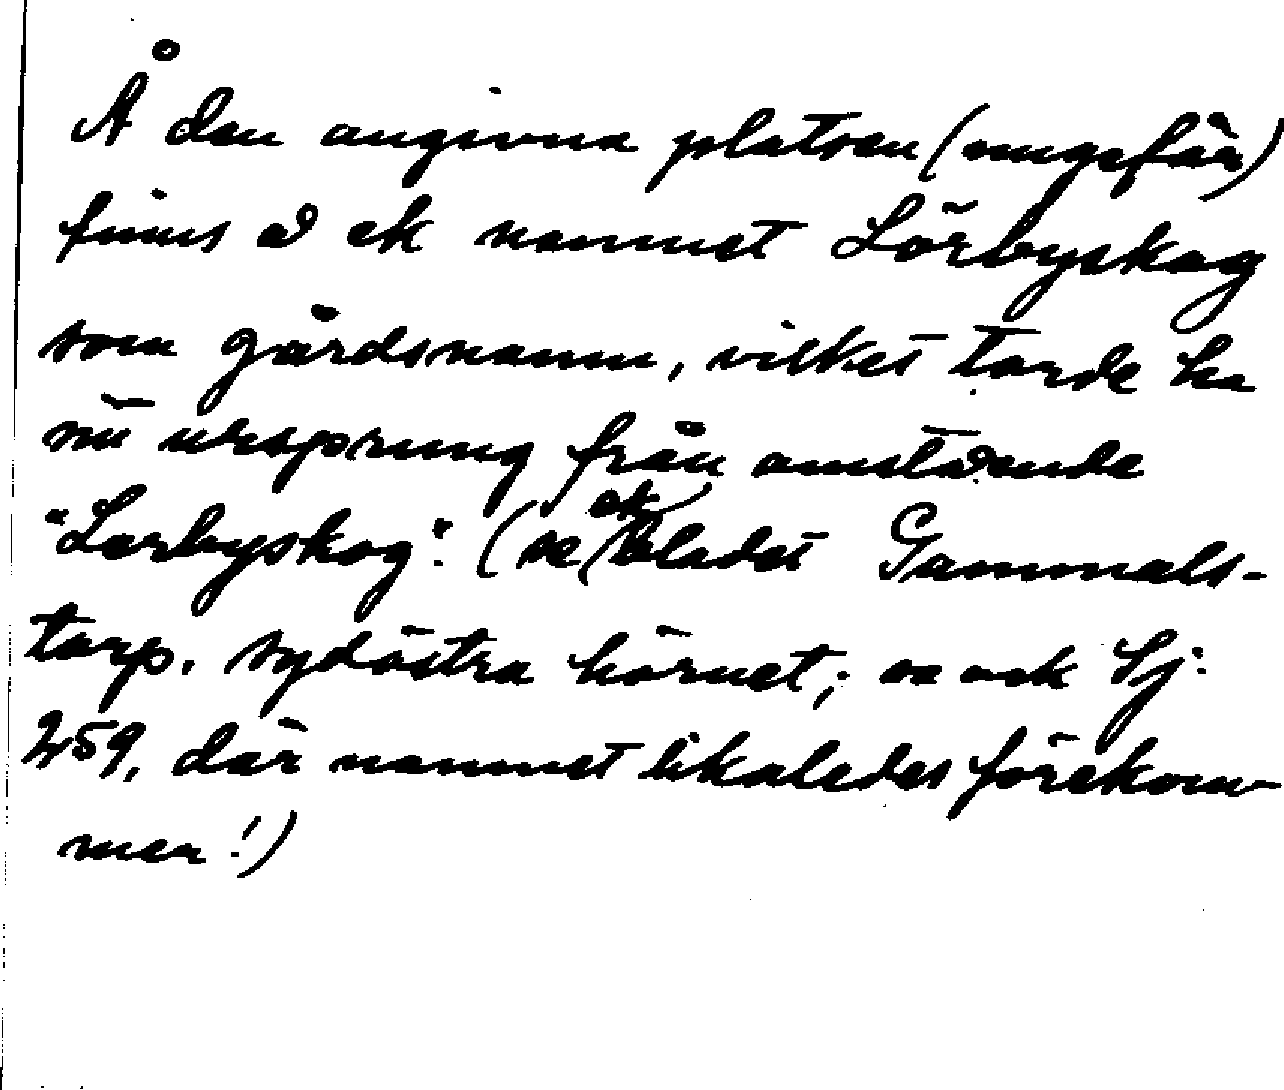 Å den angivna platsen (ungefär)
finns å ek namnet Lörbyskog
som gårdsnamn, vilket torde ha
sitt ursprung från omstående
"Lörbyskog". (se ek bladet Gammals-
torp. sydöstra hörnet; se ock Sj:
259, där namnet likaledes förekom-
mer!)